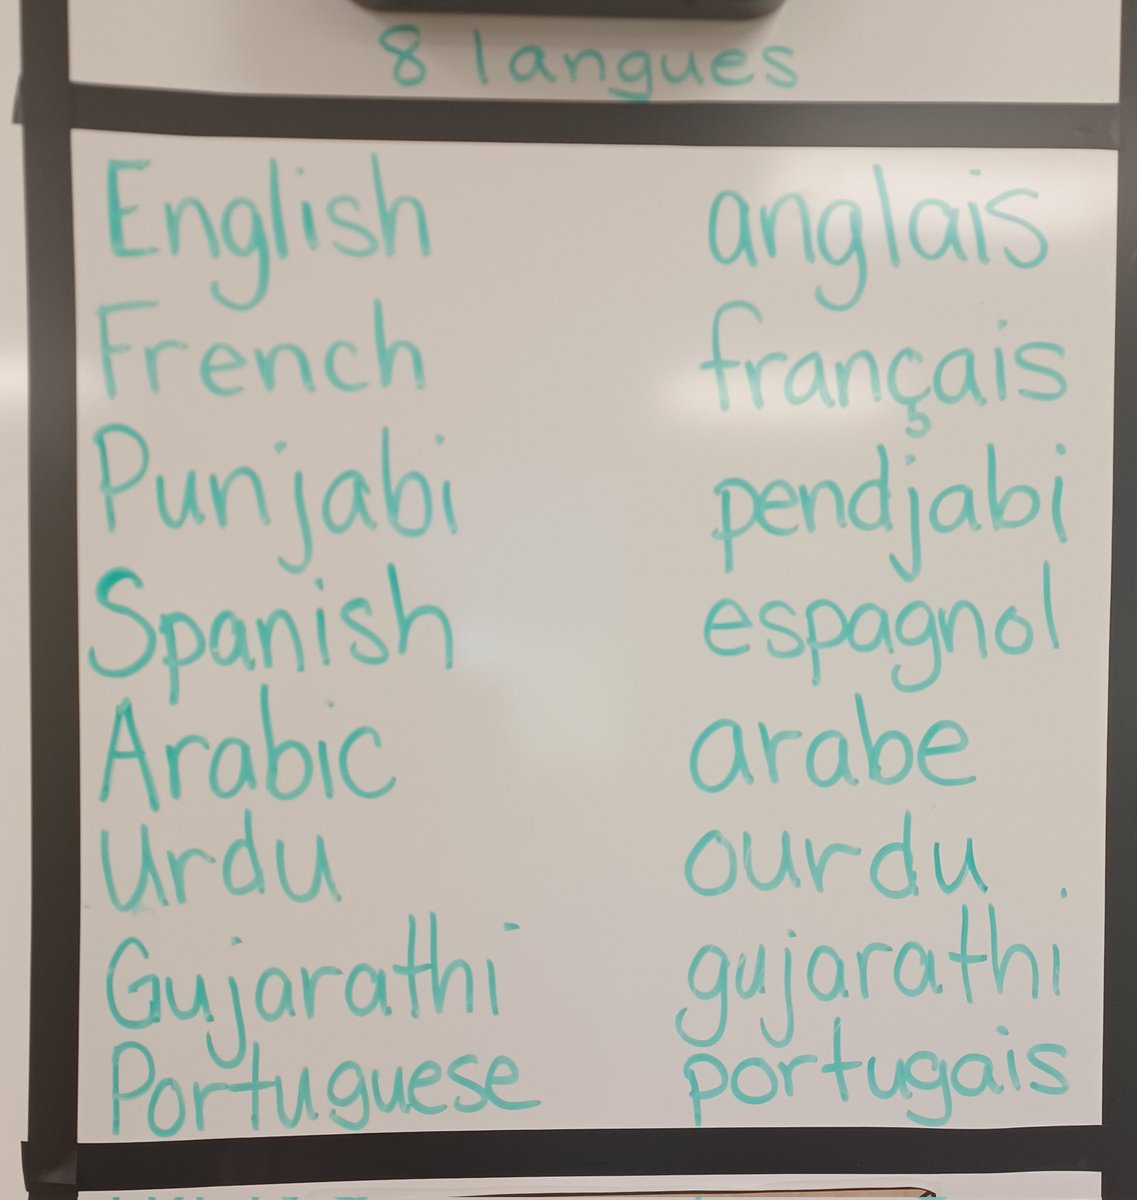 8 langues
English anglais
French français
Punjabi pendjabi
Spanish espagnol
Arabic arabe
Urdu ourdu
Gujarathi gujarathi
Portuguese portugais